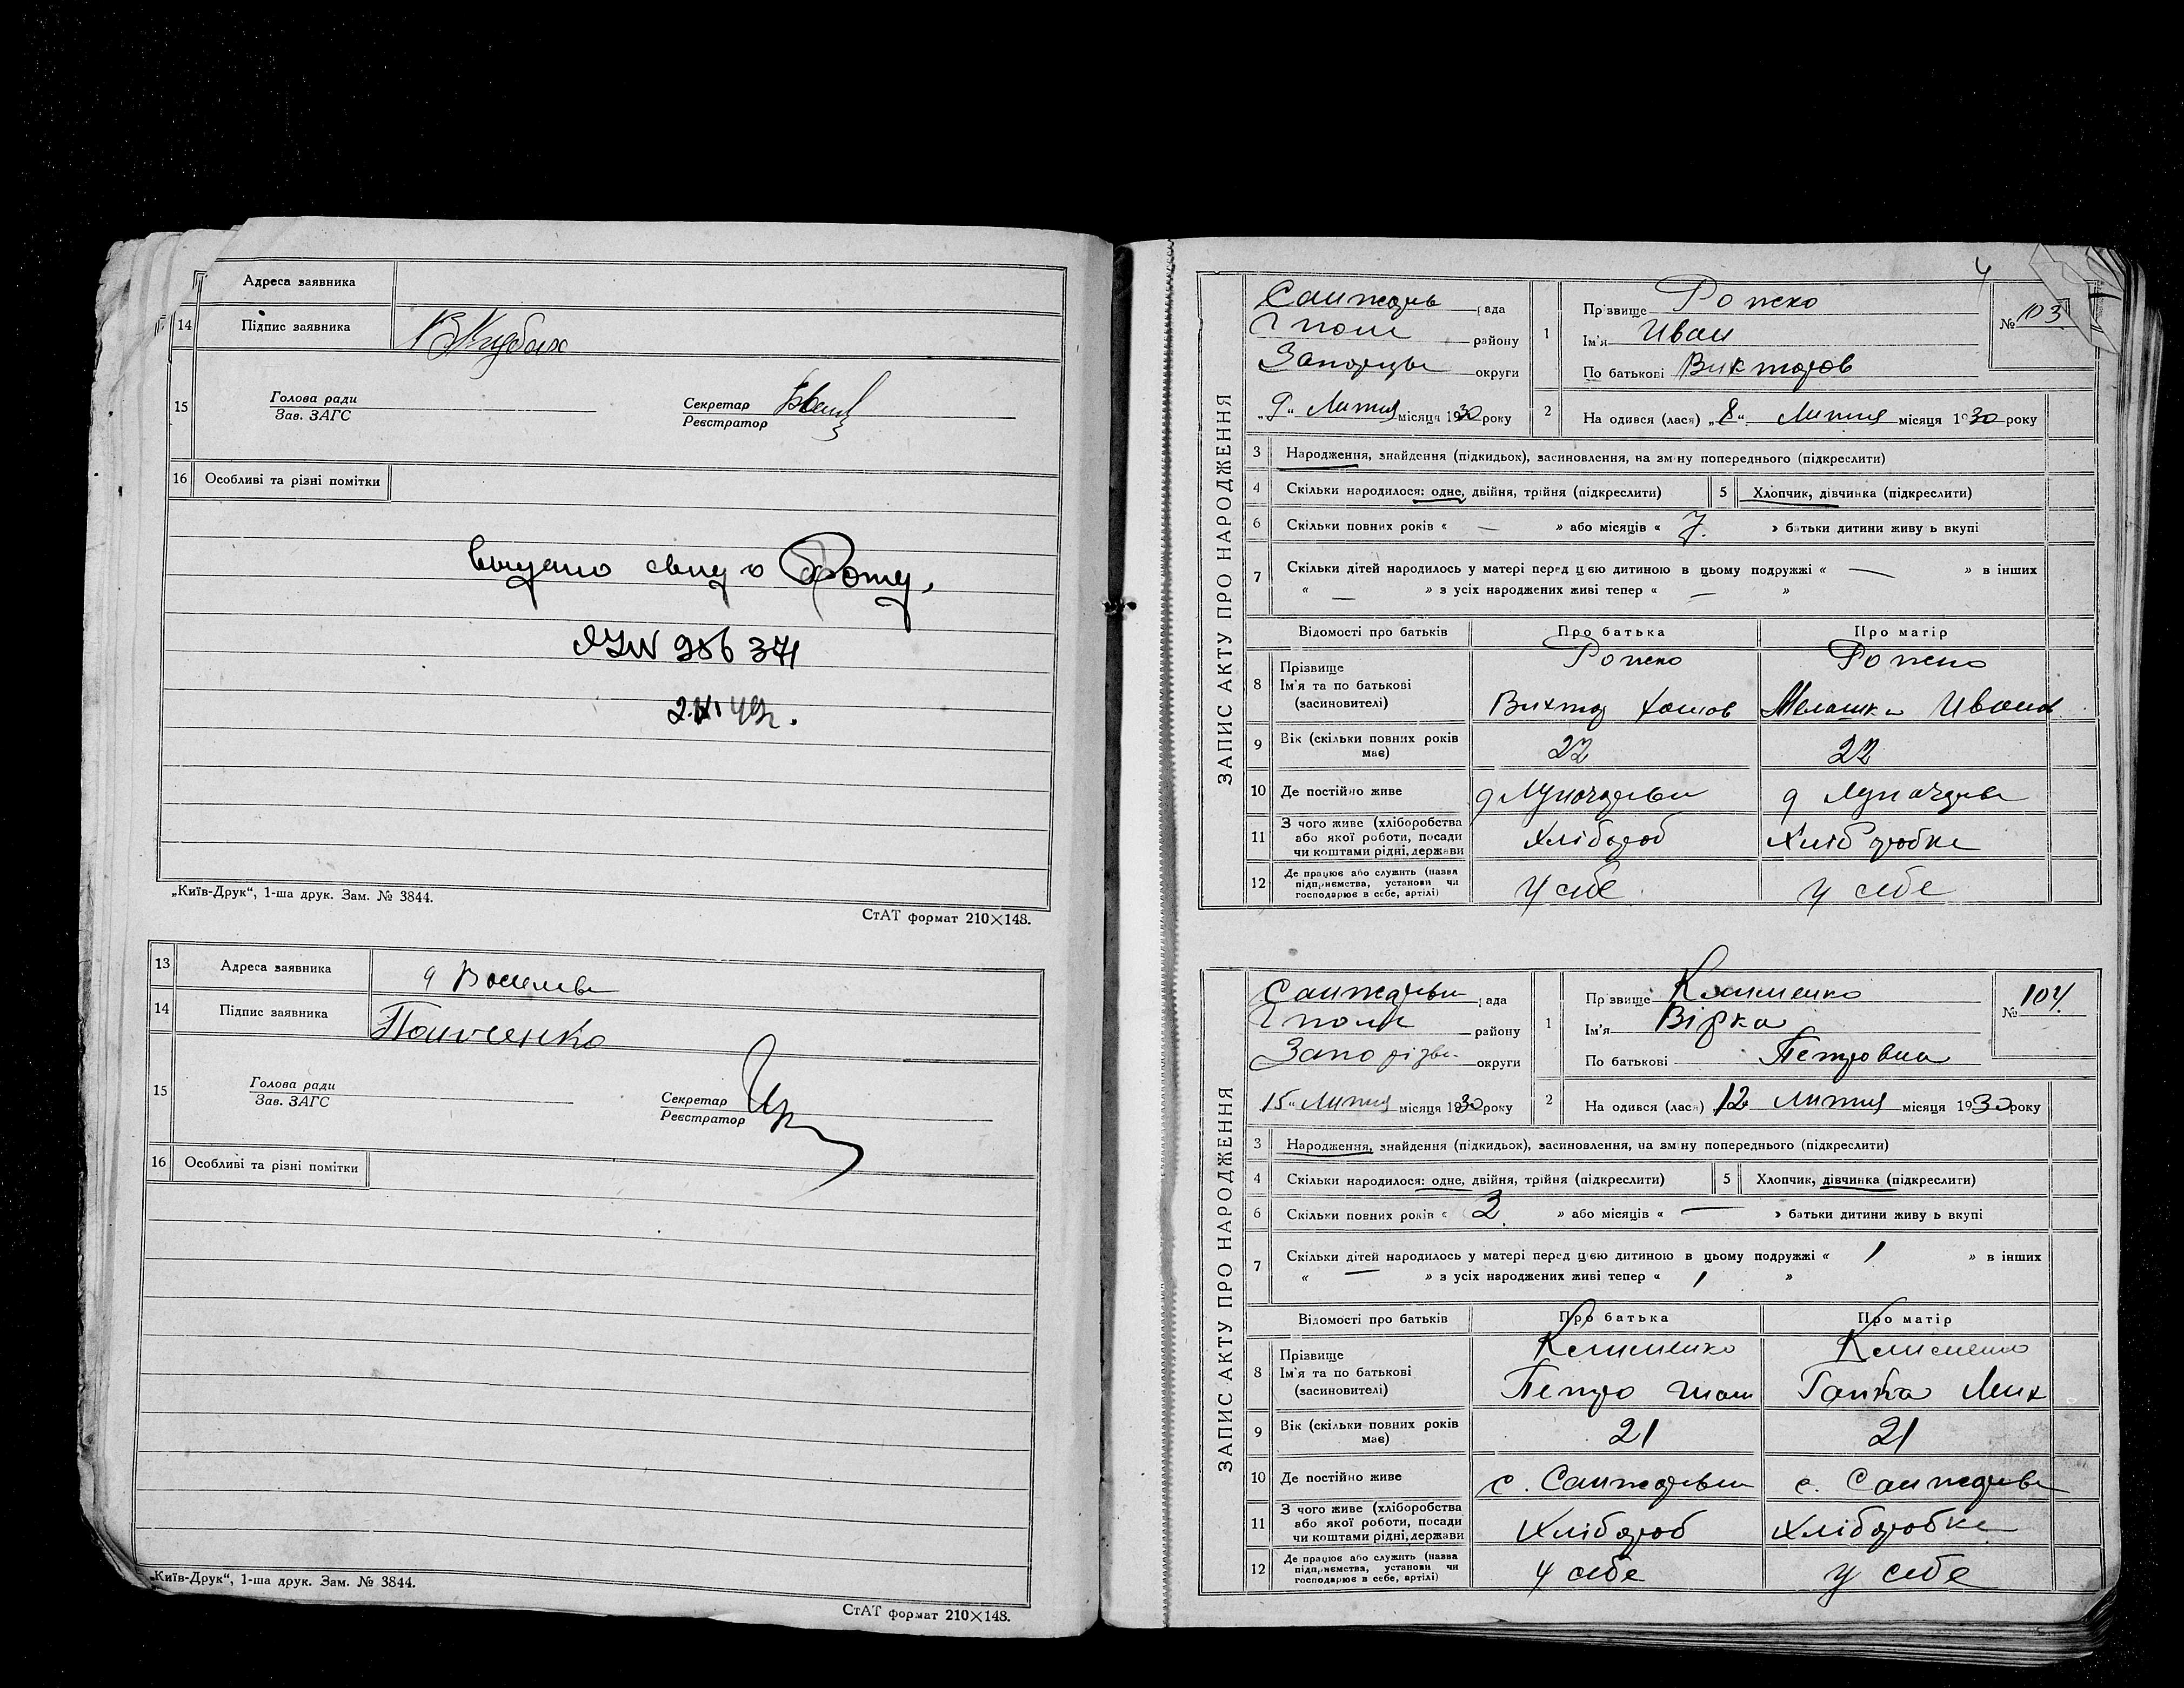 Адреса заявника
14 Підпис заявника
15 Голова ради
Зав. ЗАГС
Секретар
Реєстратор
16 Особливі та різні помітки
видано свид о
956 371
„Київ-Друк“, 1-ша друк. Зам. № 3844.
СтАТ формат 210×148.
13 Адреса заявника
14 Підпис заявника Панченко
15 Голова ради
Зав. ЗАГС
Секретар
Реєстратор
16 Особливі та різні помітки
„Київ-Друк“, 1-ша друк. Зам. № 3844.
СтАТ формат 210×148.
4
ЗАПИС АКТУ ПРО НАРОДЖЕННЯ
рада
Гполе району
округи
„9“ Лютня місяця 1930 року
1 Прізвище Рожко
Ім'я Иван
По батькові Викторов
№ 103
2 Народився (лася) „8“ Лютня місяця 1930 року
3 Народження, знайдення (підкидьок), засиновлення, на зміну попереднього (підкреслити)
4 Скільки народилося: одне, двійня, трійня (підкреслити)
5 Хлопчик, дівчинка (підкреслити)
6 Скільки повних років « — » або місяців « 7. » батьки дитини живуть вкупі
7 Скільки дітей народилось у матері перед цією дитиною в цьому подружжі « — » в інших
« — » з усіх народжених живі тепер « — »
Відомості про батьків Про батька Про матір
8 Прізвище Рожко Рожко
Ім'я та по батькові
(засиновителі) Виктор Мелашка Иванов
9 Вік (скільки повних років має) 22 22
10 Де постійно живе
11 З чого живе (хліборобства
або якої роботи, посади
чи коштами рідні, держави Хлібороб Хліборобка
12 Де працює або служить (назва
підприємства, установи чи
господарює в себе, артілі) у себе у себе
ЗАПИС АКТУ ПРО НАРОДЖЕННЯ
рада
Гполе району
Запорізьк округи
15“ Лютня місяця 1930 року
1 Прізвище Клименко
Ім'я Вірка
По батькові Петровна
№ 104
2 Народився (лася) 12 Лютня місяця 1930 року
3 Народження, знайдення (підкидьок), засиновлення, на зміну попереднього (підкреслити)
4 Скільки народилося: одне, двійня, трійня (підкреслити)
5 Хлопчик, дівчинка (підкреслити)
6 Скільки повних років « 3 » або місяців « — » батьки дитини живуть вкупі
7 Скільки дітей народилось у матері перед цією дитиною в цьому подружжі « 1 » в інших
« — » з усіх народжених живі тепер « 1 »
Відомості про батьків Про батька Про матір
8 Прізвище Клименко Клименко
Ім'я та по батькові
(засиновителі) Петро Ганна
9 Вік (скільки повних років має) 21 21
10 Де постійно живе с. с.
11 З чого живе (хліборобства
або якої роботи, посади
чи коштами рідні, держави Хлібороб Хліборобка
12 Де працює або служить (назва
підприємства, установи чи
господарює в себе, артілі) у себе у себе